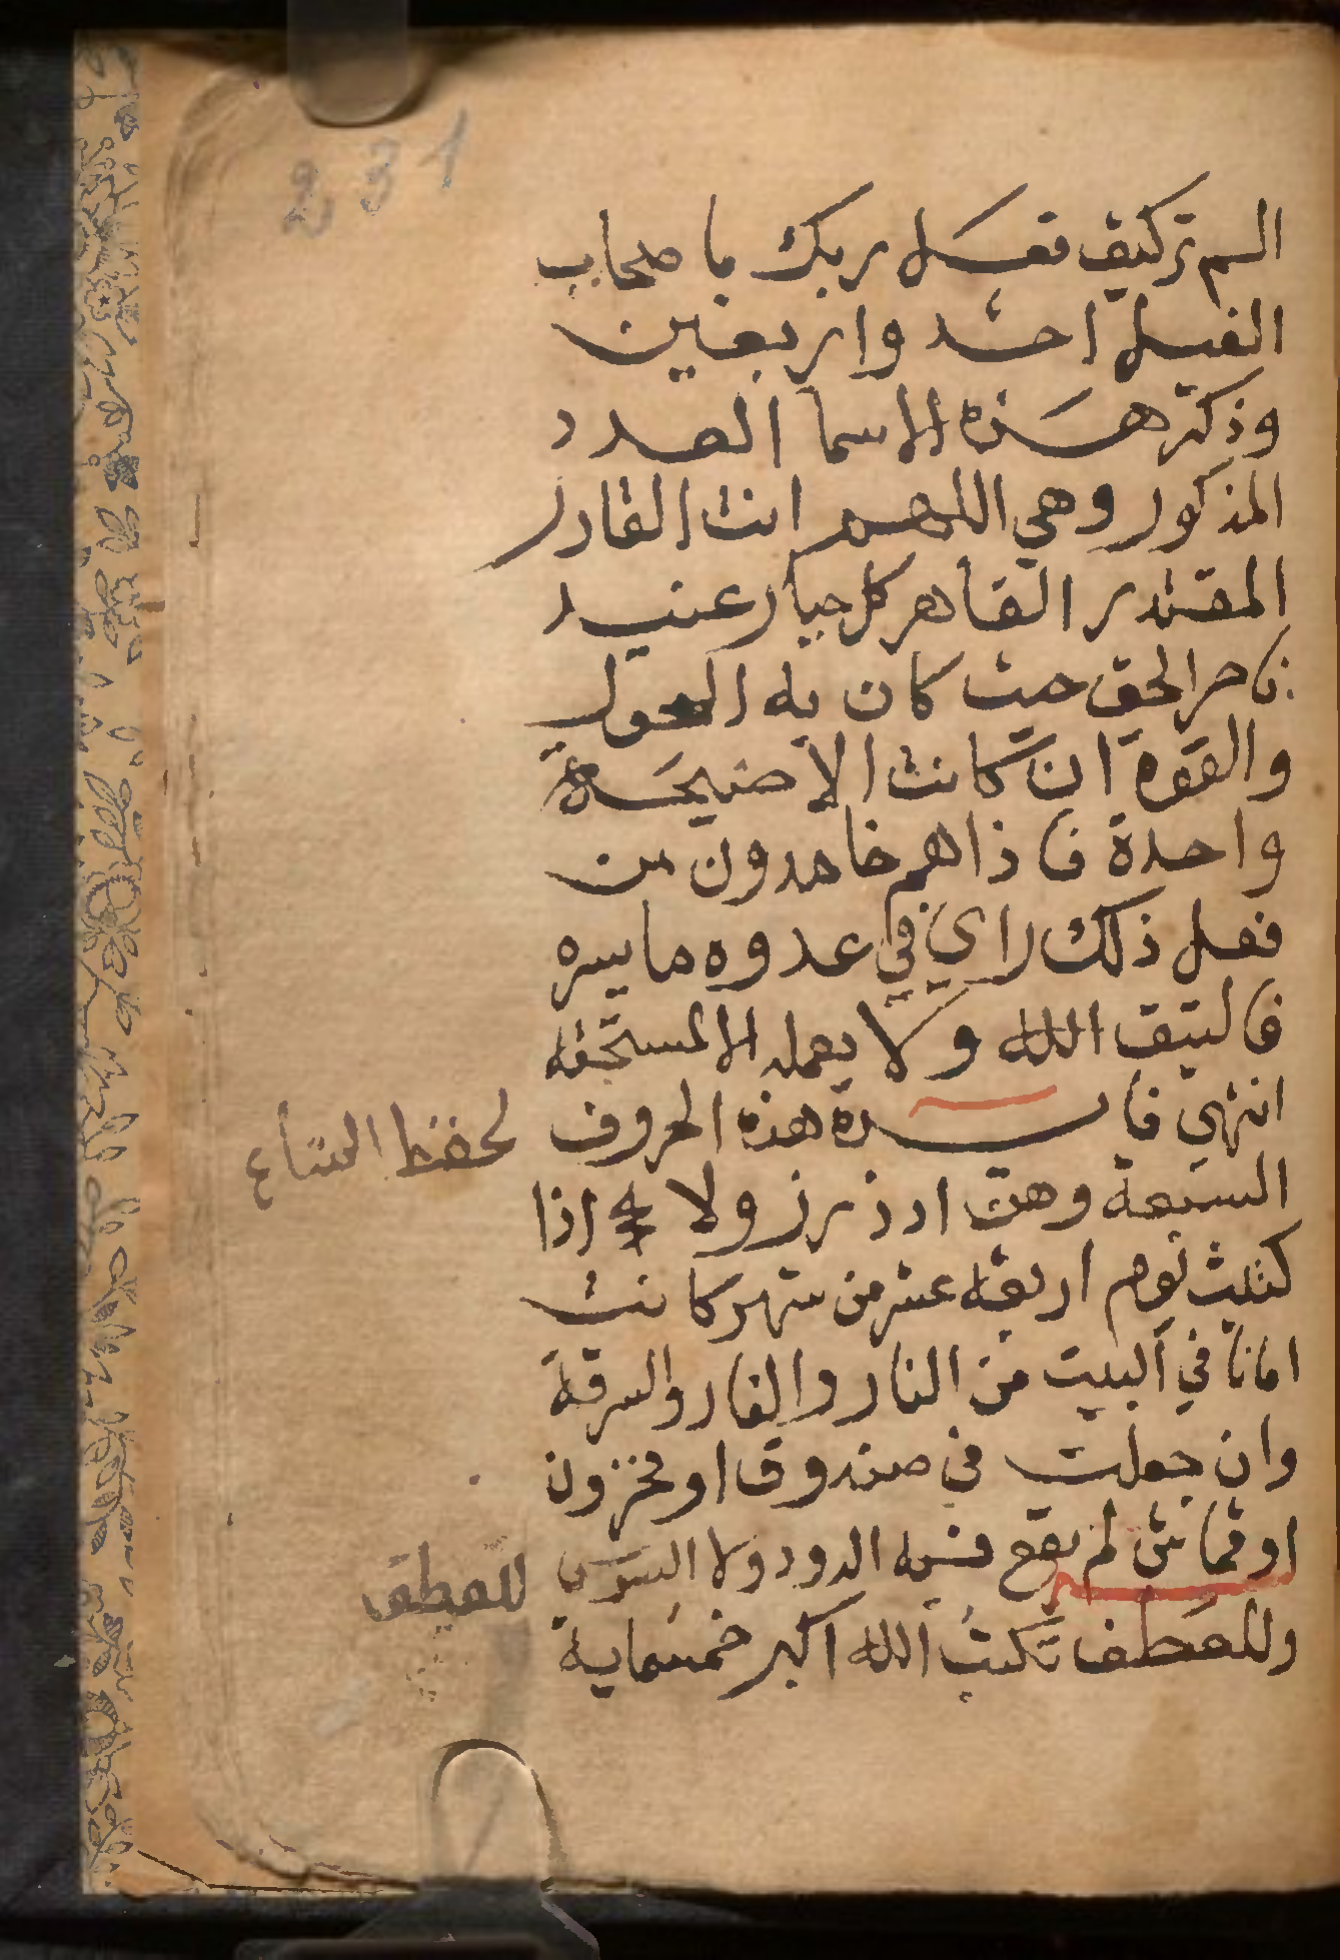 231
الم تركيف فعل ربك باصحاب
الفيل احد واربعين
وذكر هذه الاسما العدد
المذكور وهي اللهم انت القادر
المقتدر القاهر كل جبار عنيد
ناصر الحق حيث كان به الحول
والقوة ان كانت الا صيحة
واحدة فاذاهم خامدون من
فعل ذلك راي في عدوه مايسره
فاليتق الله ولا يعمله الا لمستحقه
انتهي فايدة هذه الحروف
لحفظ المتاع
السبعة وهي ا د ذ ر ز و لا اذا
كتبت يوم اربعة عشر من شهر كانت
امانا في البيت من النار والفار والسرقة
وان جعلت في صندوق او مخزون
او قماش لم يقع فيه الدود ولا السوس
للعطف
وللعطف تكتب الله اكبر خمسماية